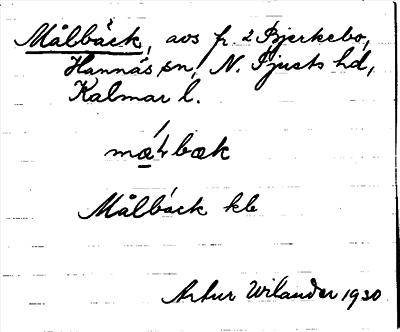 Målbäck, avs fr. 2 Bjerkebo,
Hannäs sn, N. Tjusts hd,
Kalmar l.
Målbäck kb
Artur Wilander 1930